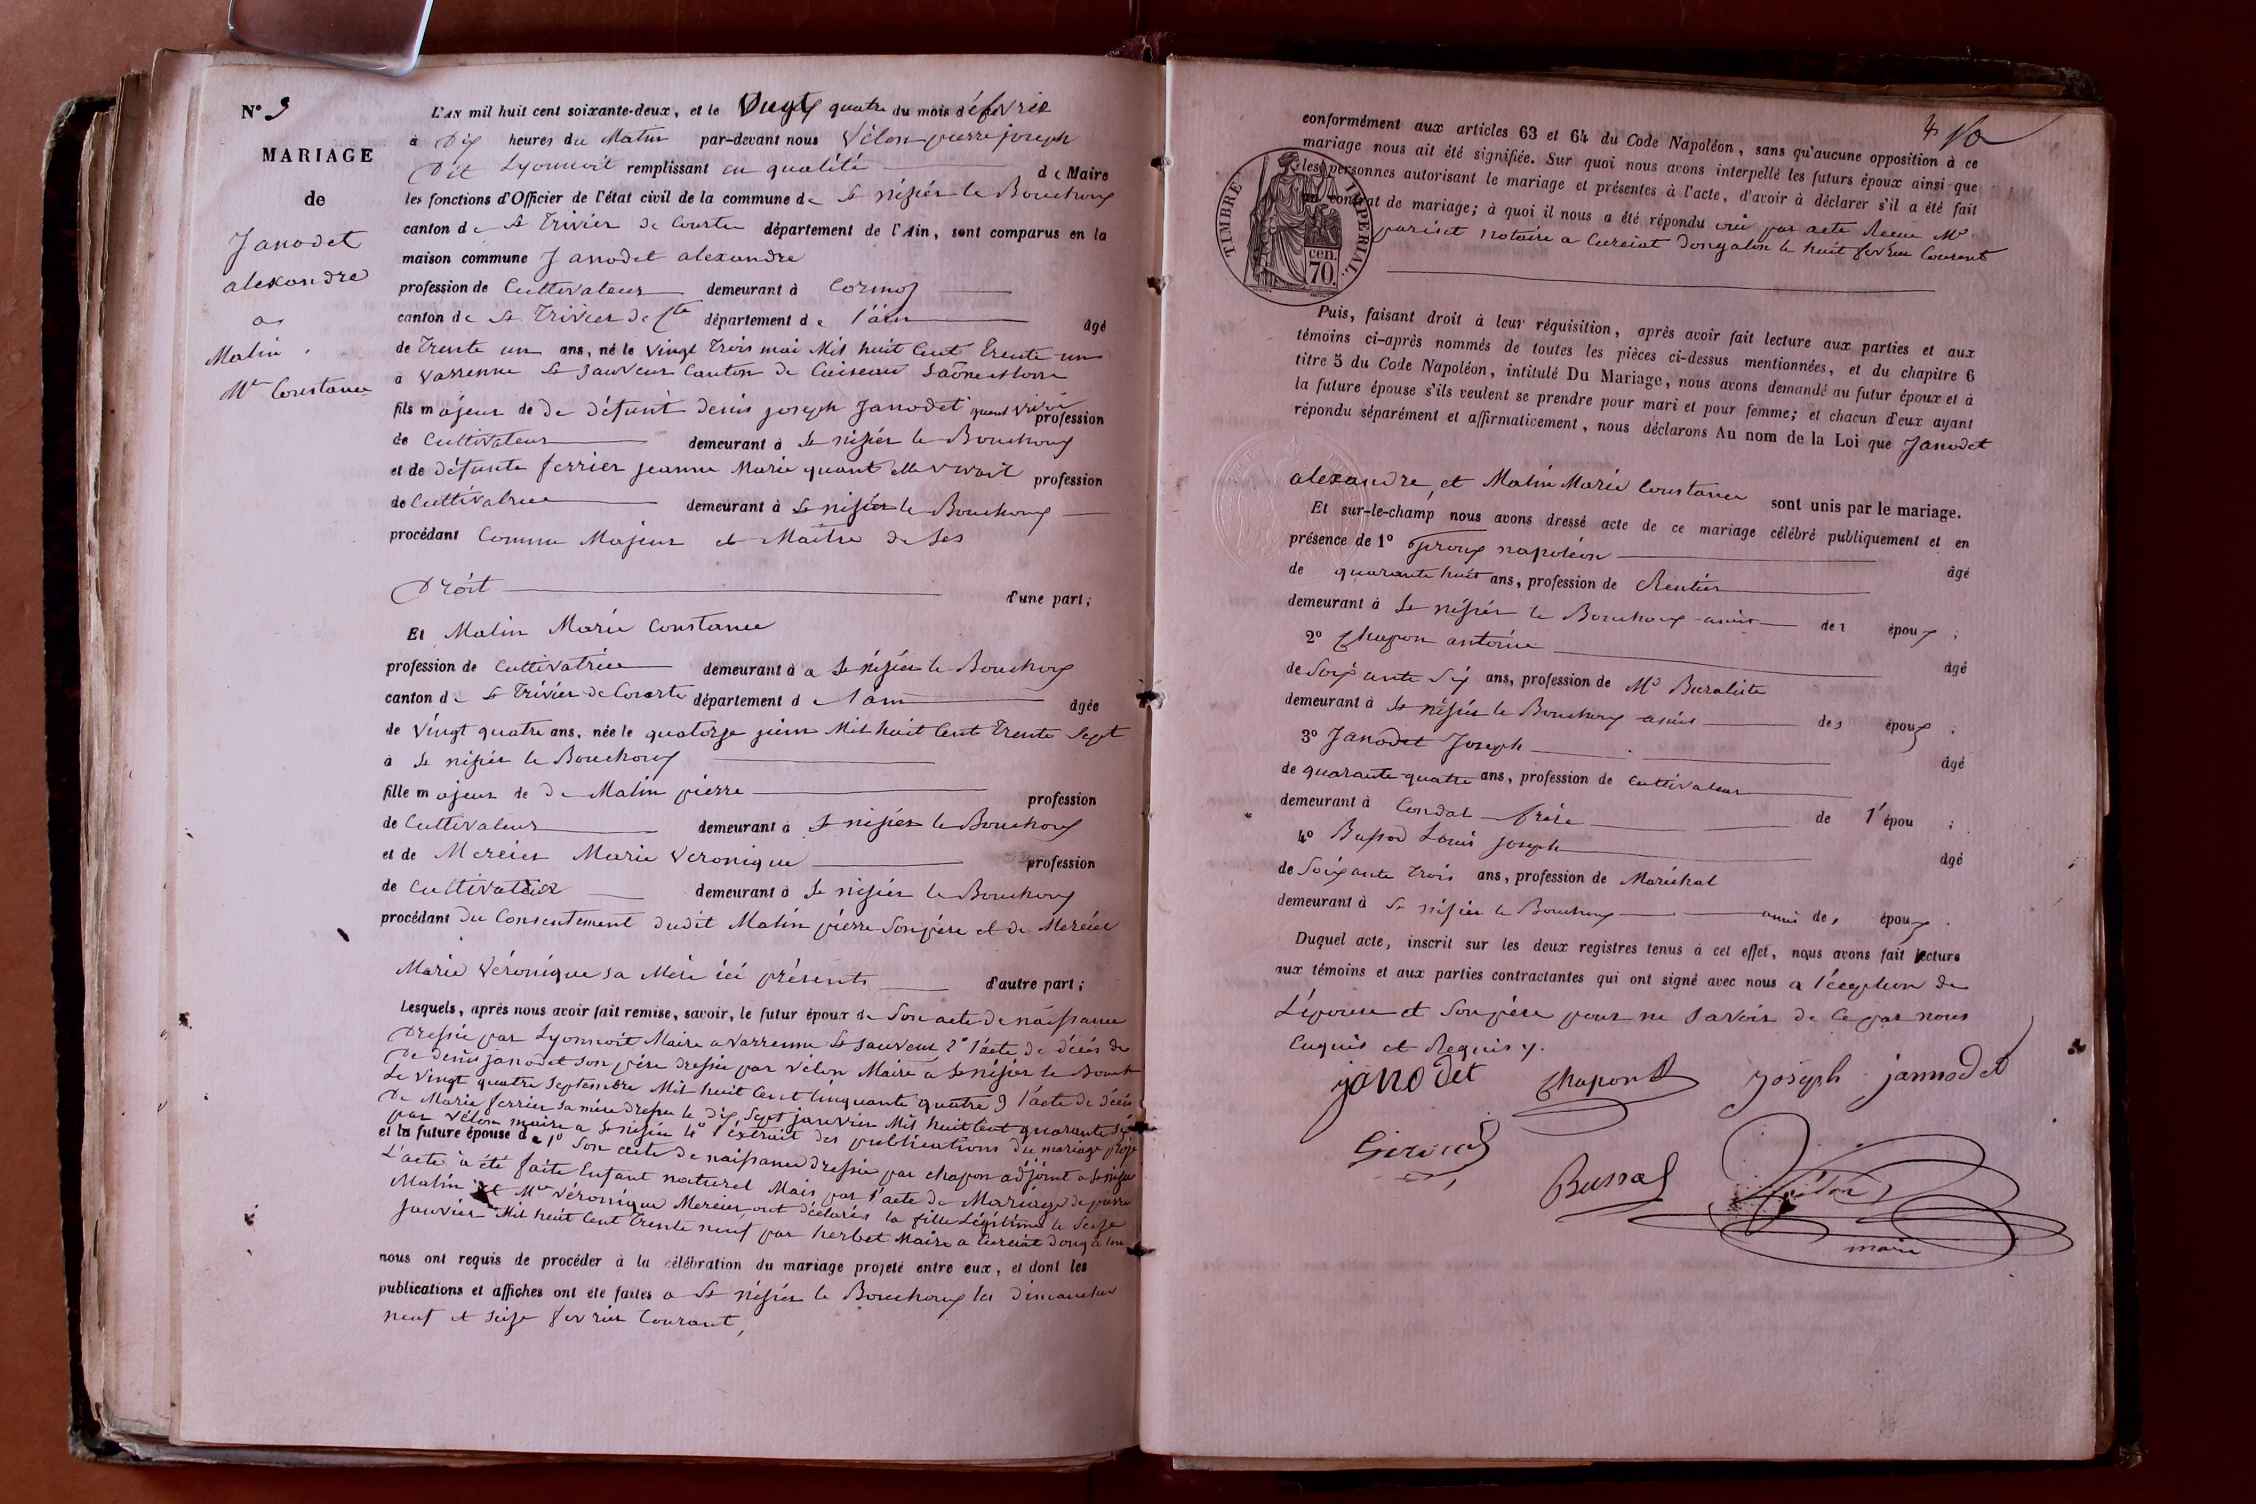 N° 9
MARIAGE
de
Janodet
alexandre
a
Matin
Mie Constance
L'AN mil huit cent soixante-deux, et le Vingt quatre du mois de février
à Dix heures du Matin par-devant nous Vélon pierre joseph
Dit Lyonnoit remplissant en qualité de Maire
les fonctions d'Officier de l'état civil de la commune de St nisier le Bouchoux
canton de St Trivier de Courte département de l'Ain, sont comparus en la
maison commune Janodet alexandre
profession de Cultivateur demeurant à Cormoz
canton de St Trivier de Cte département de l'ain âgé
de Trente un ans, né le vingt trois mai Mil huit Cent Trente un
à Varrenne St Sauveur Canton de Cuiseau Saône et loire
fils majeur de de défunt denis joseph Janodet quant vivoi profession
de Cultivateur demeurant à St nisier le Bouchoux
et de défunte ferrier jeanne Marie quant elle vivoit profession
de Cultivatrice demeurant à St nisier le Bouchoux
procédant Comme Majeur et Maitre de Ses
Droit d'une part;
Et Matin Marie Constance
profession de Cultivatrice demeurant à a St nisier le Bouchoux
canton de St Trivier de Courte département de l'ain âgée
de Vingt quatre ans, née le quatorze juin Mil huit Cent Trente Sept
à St nisier le Bouchoux
fille majeur de de Matin pierre profession
de Cultivateur demeurant à St nisier le Bouchoux
et de Mercier Marie Veronique profession
de Cultivatrice demeurant à St nisier le Bouchoux
procédant du Consentement dudit Matin pierre Son père et de Mercier
Marie Véronique sa Mère ici présents d'autre part;
Lesquels, après nous avoir fait remise, savoir, le futur époux de Son acte de naissance
Dressée par Lyonnoit Maire a varrenne St Sauveur 2° l'acte de décés de
De denis janodet son père dressée par vélon Maire a St nisier le Bouch
Le Vingt quatre Septembre Mil huit Cent Cinquante quatre 3 l'acte de décés
De Marie ferrier sa mère dressée le dix Sept janvier Mil huit Cent quarante six
par vélon maire a St nisier 4° l'extrait des publications du mariage proje
et la future épouse de 1° Son acte de naissance dressée par chapon adjoint a St nisier
L'acte à été faite Enfant naturel Mais par l'acte de Mariage de pierre
Matin et Mie Véronique Mercier ont déclarés la fille Légitime le Seize
Janvier Mil huit Cent Trente neuf par herbet Maire a Curciat dongalon
nous ont requis de procéder à la célébration du mariage projeté entre eux, et dont les
publications et affiches ont été faites a St nisier le Bouchoux les dimanches
neuf et seize février Courant,
conformément aux articles 63 et 64 du Code Napoléon, sans qu'aucune opposition à ce
mariage nous ait été signifiée. Sur quoi nous avons interpellé les futurs époux ainsi que
les personnes autorisant le mariage et présentes à l'acte, d'avoir à déclarer s'il a été fait
un contrat de mariage; à quoi il nous a été répondu oui par acte Recu Me
pariset notaire a Curciat dongalon le huit février Courant
TIMBRE IMPERIAL
70 cen.
Puis, faisant droit à leur réquisition, après avoir fait lecture aux parties et aux
témoins ci-après nommés de toutes les pièces ci-dessus mentionnées, et du chapitre 6
titre 5 du Code Napoléon, intitulé Du Mariage, nous avons demandé au futur époux et à
la future épouse s'ils veulent se prendre pour mari et pour femme; et chacun d'eux ayant
répondu séparément et affirmativement, nous déclarons Au nom de la Loi que Janodet
alexandre, et Matin Marie Constance sont unis par le mariage.
Et sur-le-champ nous avons dressé acte de ce mariage célébré publiquement et en
présence de 1° napoléon âgé
de quarante huit ans, profession de Rentier
demeurant à St nisier le Bouchoux amis des époux;
2° Chapon antoine âgé
de Soixante Six ans, profession de Md Buraliste
demeurant à St nisier le Bouchoux amis des époux.
3° Janodet Joseph âgé
de quarante quatre ans, profession de cultivateur
demeurant à Condal frère de l'épou;
4° Bussod Louis joseph âgé
de Soixante trois ans, profession de Maréchal
demeurant à St nisier le Bouchoux amis des époux.
Duquel acte, inscrit sur les deux registres tenus à cet effet, nous avons fait lecture
aux témoins et aux parties contractantes qui ont signé avec nous a l'éception de
L'épouse et Son père pour ne Savoir de Ce par nous
Enquis et Requis y.
janodet Chapon joseph jannodet
Bussod Vélon
maire